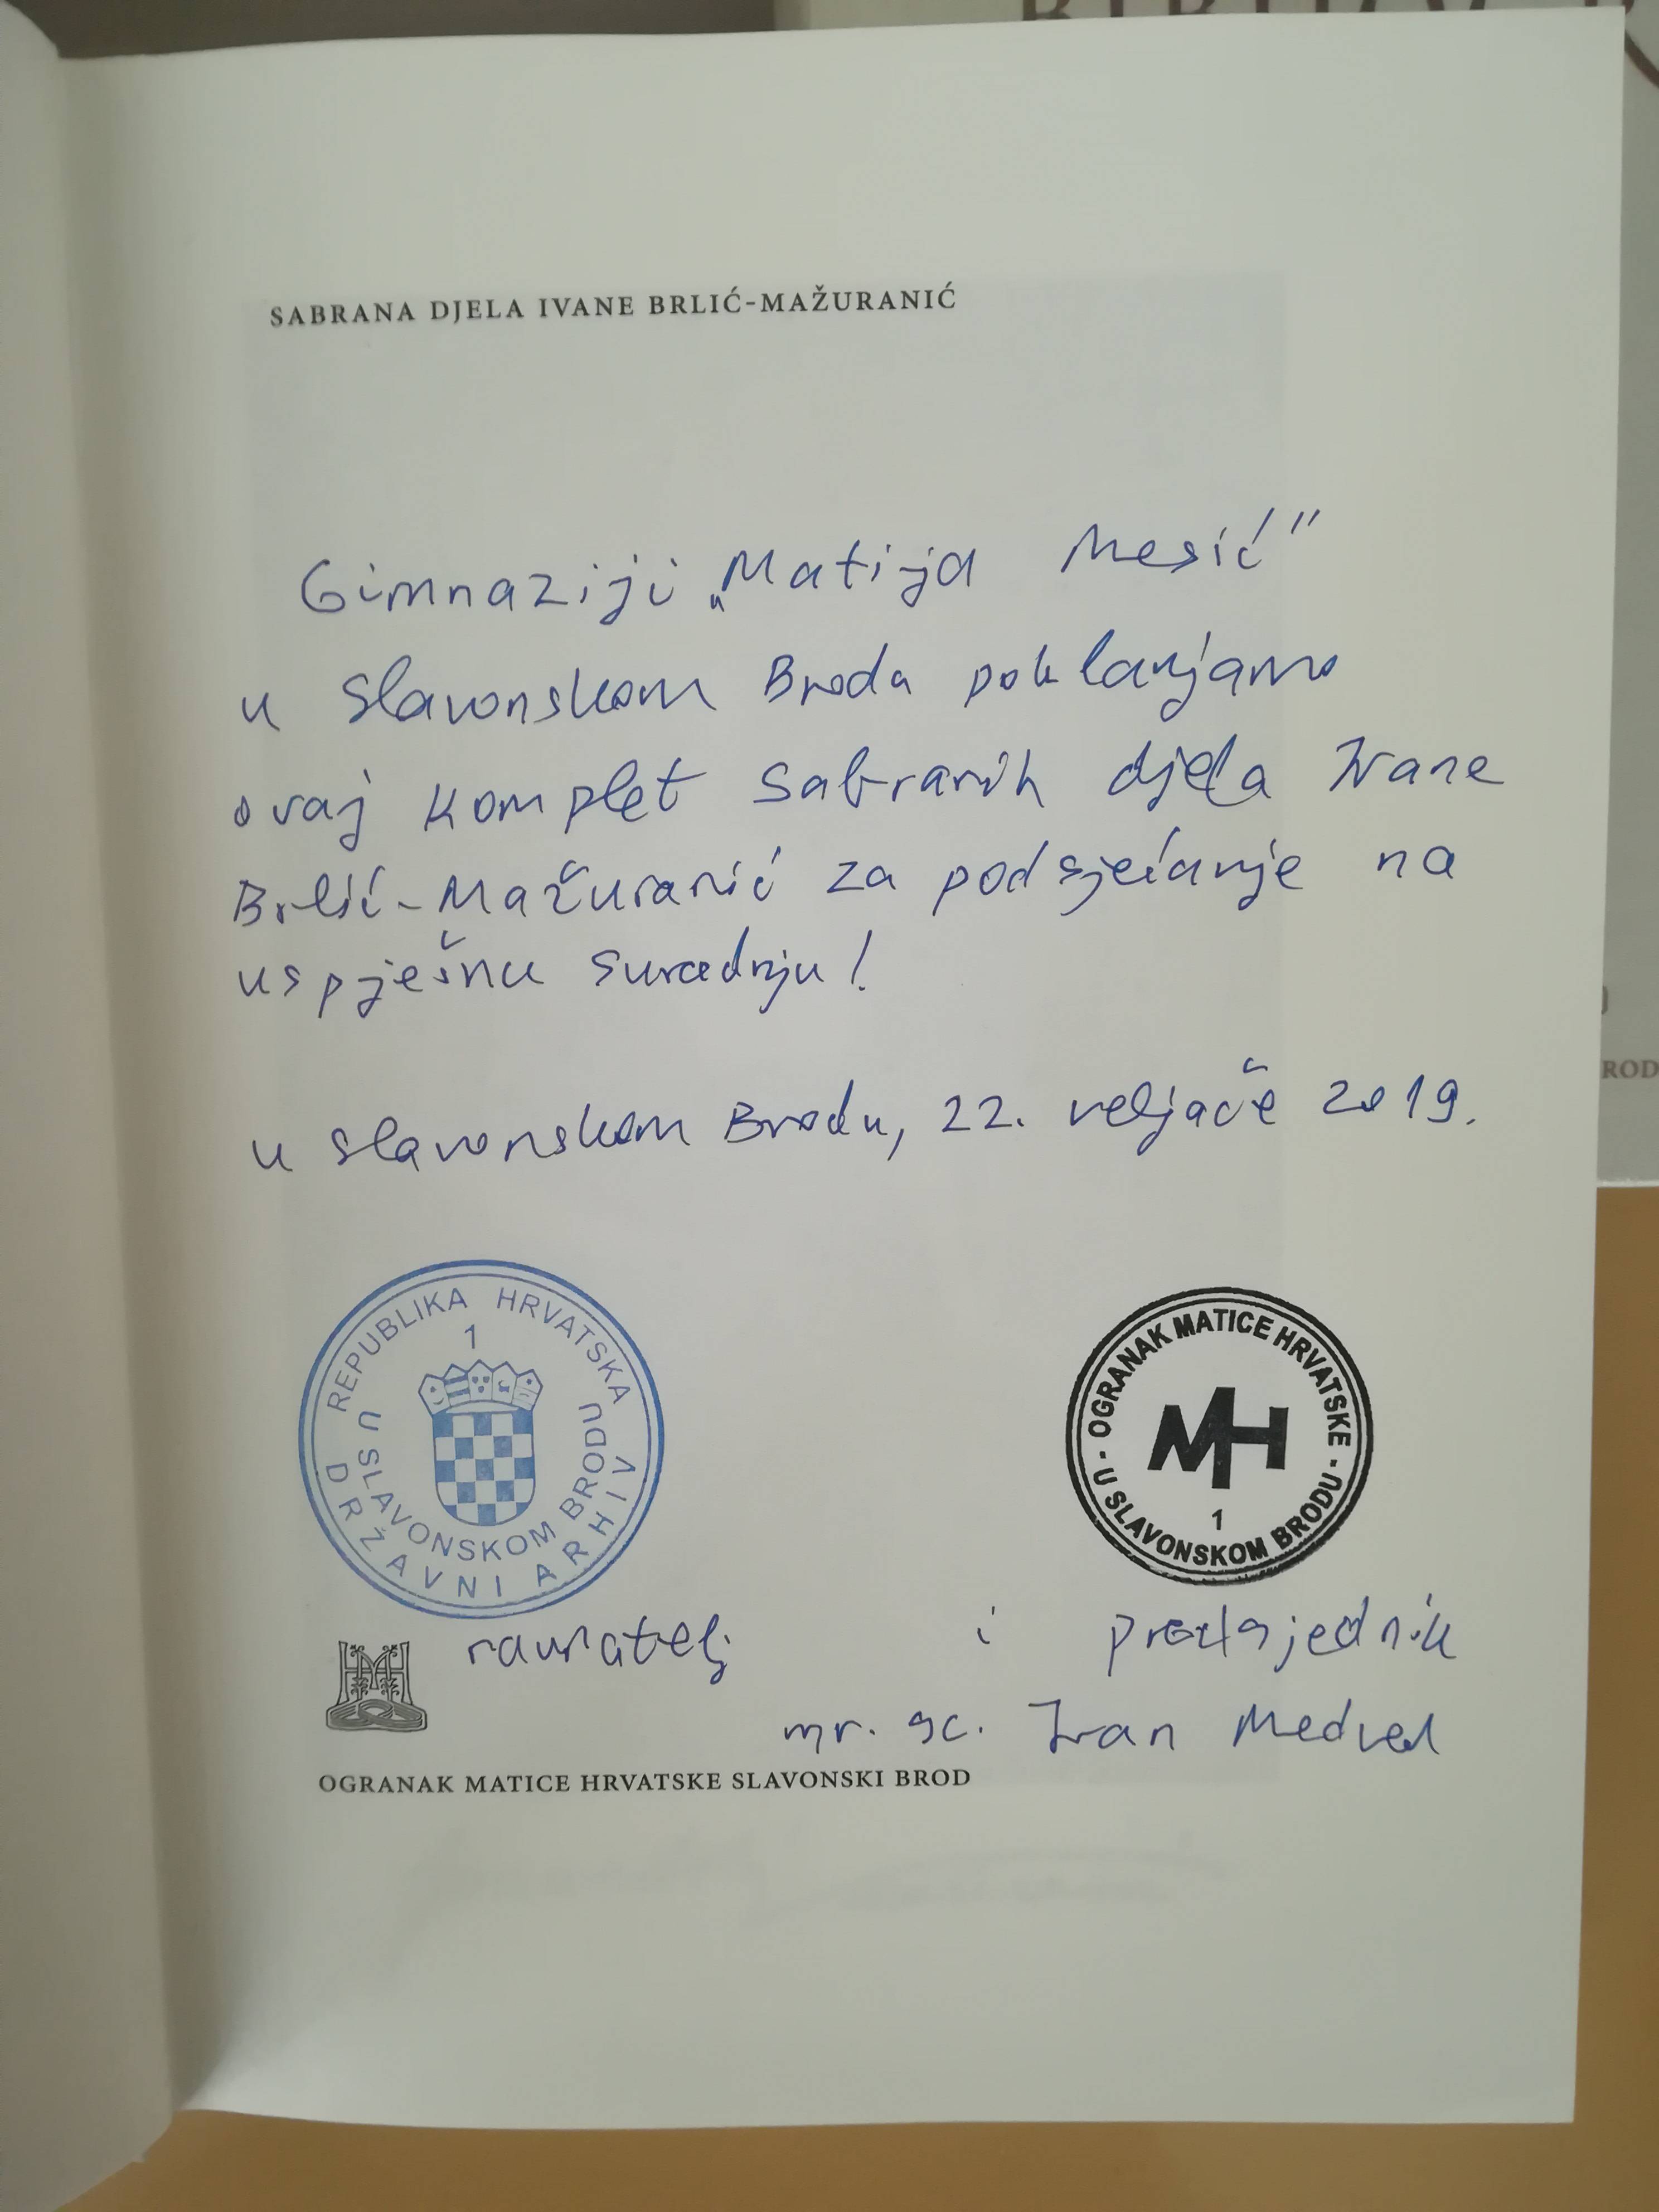 SABRANA DJELA IVANE BRLIĆ-MAŽURANIĆ
Gimnaziji „Matija Mesić"
u Slavonskom Brodu poklanjamo
ovaj komplet Sabranih djela Ivane
Brlić-Mažuranić za podsjećanje na
uspješnu suradnju!
u Slavonskom Brodu, 22. veljače 2019.
REPUBLIKA HRVATSKA
1
DRŽAVNI ARHIV
U SLAVONSKOM BRODU
- OGRANAK MATICE HRVATSKE -
MH
1
U SLAVONSKOM BRODU
ravnatelj i predsjednik
mr. sc. Ivan Medved
OGRANAK MATICE HRVATSKE SLAVONSKI BROD
ROD